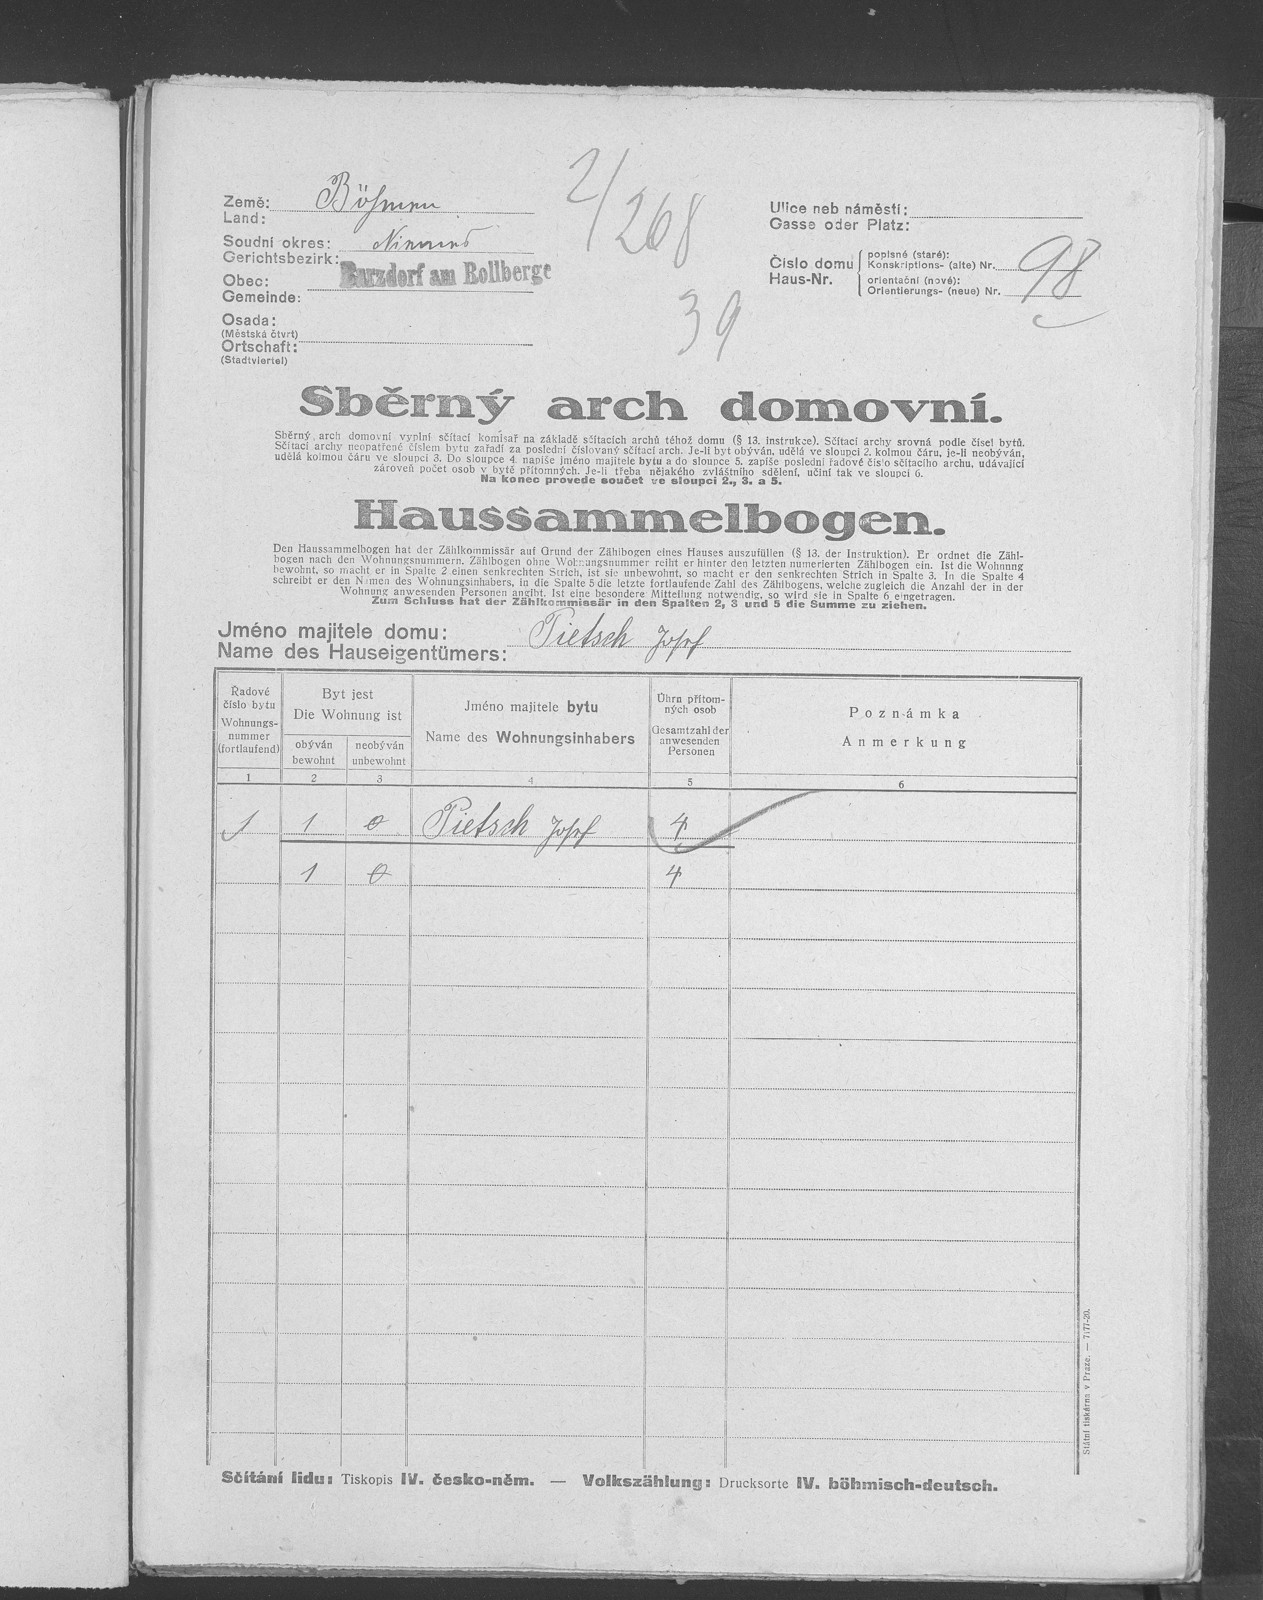 Země: Böhmen
Land:
Soudní okres: Niemes
Gerichtsbezirk:
Obec: Barzdorf am Rollberge
Gemeinde:
Osada:
(Městská čtvrt)
Ortschaft:
(Stadtviertel)
2/268
39
Ulice neb náměstí:
Gasse oder Platz:
Číslo domu popisné (staré):
Konskriptions- (alte) Nr. 98
Haus-Nr. orientační (nové):
Orientierungs- (neue) Nr.
Sběrný arch domovní.
Sběrný arch domovní vyplní sčítací komisař na základě sčítacích archů téhož domu (§ 13. instrukce). Sčítací archy srovná podle čísel bytů.
Sčítací archy neopatřené číslem bytu zařadí za poslední číslovaný sčítací arch. Je-li byt obýván, udělá ve sloupci 2. kolmou čáru, je-li neobýván,
udělá kolmou čáru ve sloupci 3. Do sloupce 4. napíše jméno majitele bytu a do sloupce 5. zapíše poslední řadové číslo sčítacího archu, udávající
zároveň počet osob v bytě přítomných. Je-li třeba nějakého zvláštního sdělení, učiní tak ve sloupci 6.
Na konec provede součet ve sloupci 2., 3. a 5.
Haussammelbogen.
Den Haussammelbogen hat der Zählkommissär auf Grund der Zählbogen eines Hauses auszufüllen (§ 13. der Instruktion). Er ordnet die Zähl-
bogen nach den Wohnungsnummern. Zählbogen ohne Wohnungsnummer reiht er hinter den letzten numerierten Zählbogen ein. Ist die Wohnung
bewohnt, so macht er in Spalte 2 einen senkrechten Strich, ist sie unbewohnt, so macht er den senkrechten Strich in Spalte 3. In die Spalte 4
schreibt er den Namen des Wohnungsinhabers, in die Spalte 5 die letzte fortlaufende Zahl des Zählbogens, welche zugleich die Anzahl der in der
Wohnung anwesenden Personen angibt. Ist eine besondere Mitteilung notwendig, so wird sie in Spalte 6 eingetragen.
Zum Schluss hat der Zählkommissär in den Spalten 2, 3 und 5 die Summe zu ziehen.
Jméno majitele domu: Pietsch Josef
Name des Hauseigentümers:
Řadové
číslo bytu
Wohnungs-
nummer
(fortlaufend)
Byt jest
Die Wohnung ist
obýván
bewohnt
neobýván
unbewohnt
Jméno majitele bytu
Name des Wohnungsinhabers
Úhrn přítom-
ných osob
Gesamtzahl der
anwesenden
Personen
Poznámka
Anmerkung
1 2 3 4 5 6
1 1 0 Pietsch Josef 4
1 0 4
Sčítání lidu: Tiskopis IV. česko-něm. — Volkszählung: Drucksorte IV. böhmisch-deutsch.
Státní tiskárna v Praze. — 7177-20.